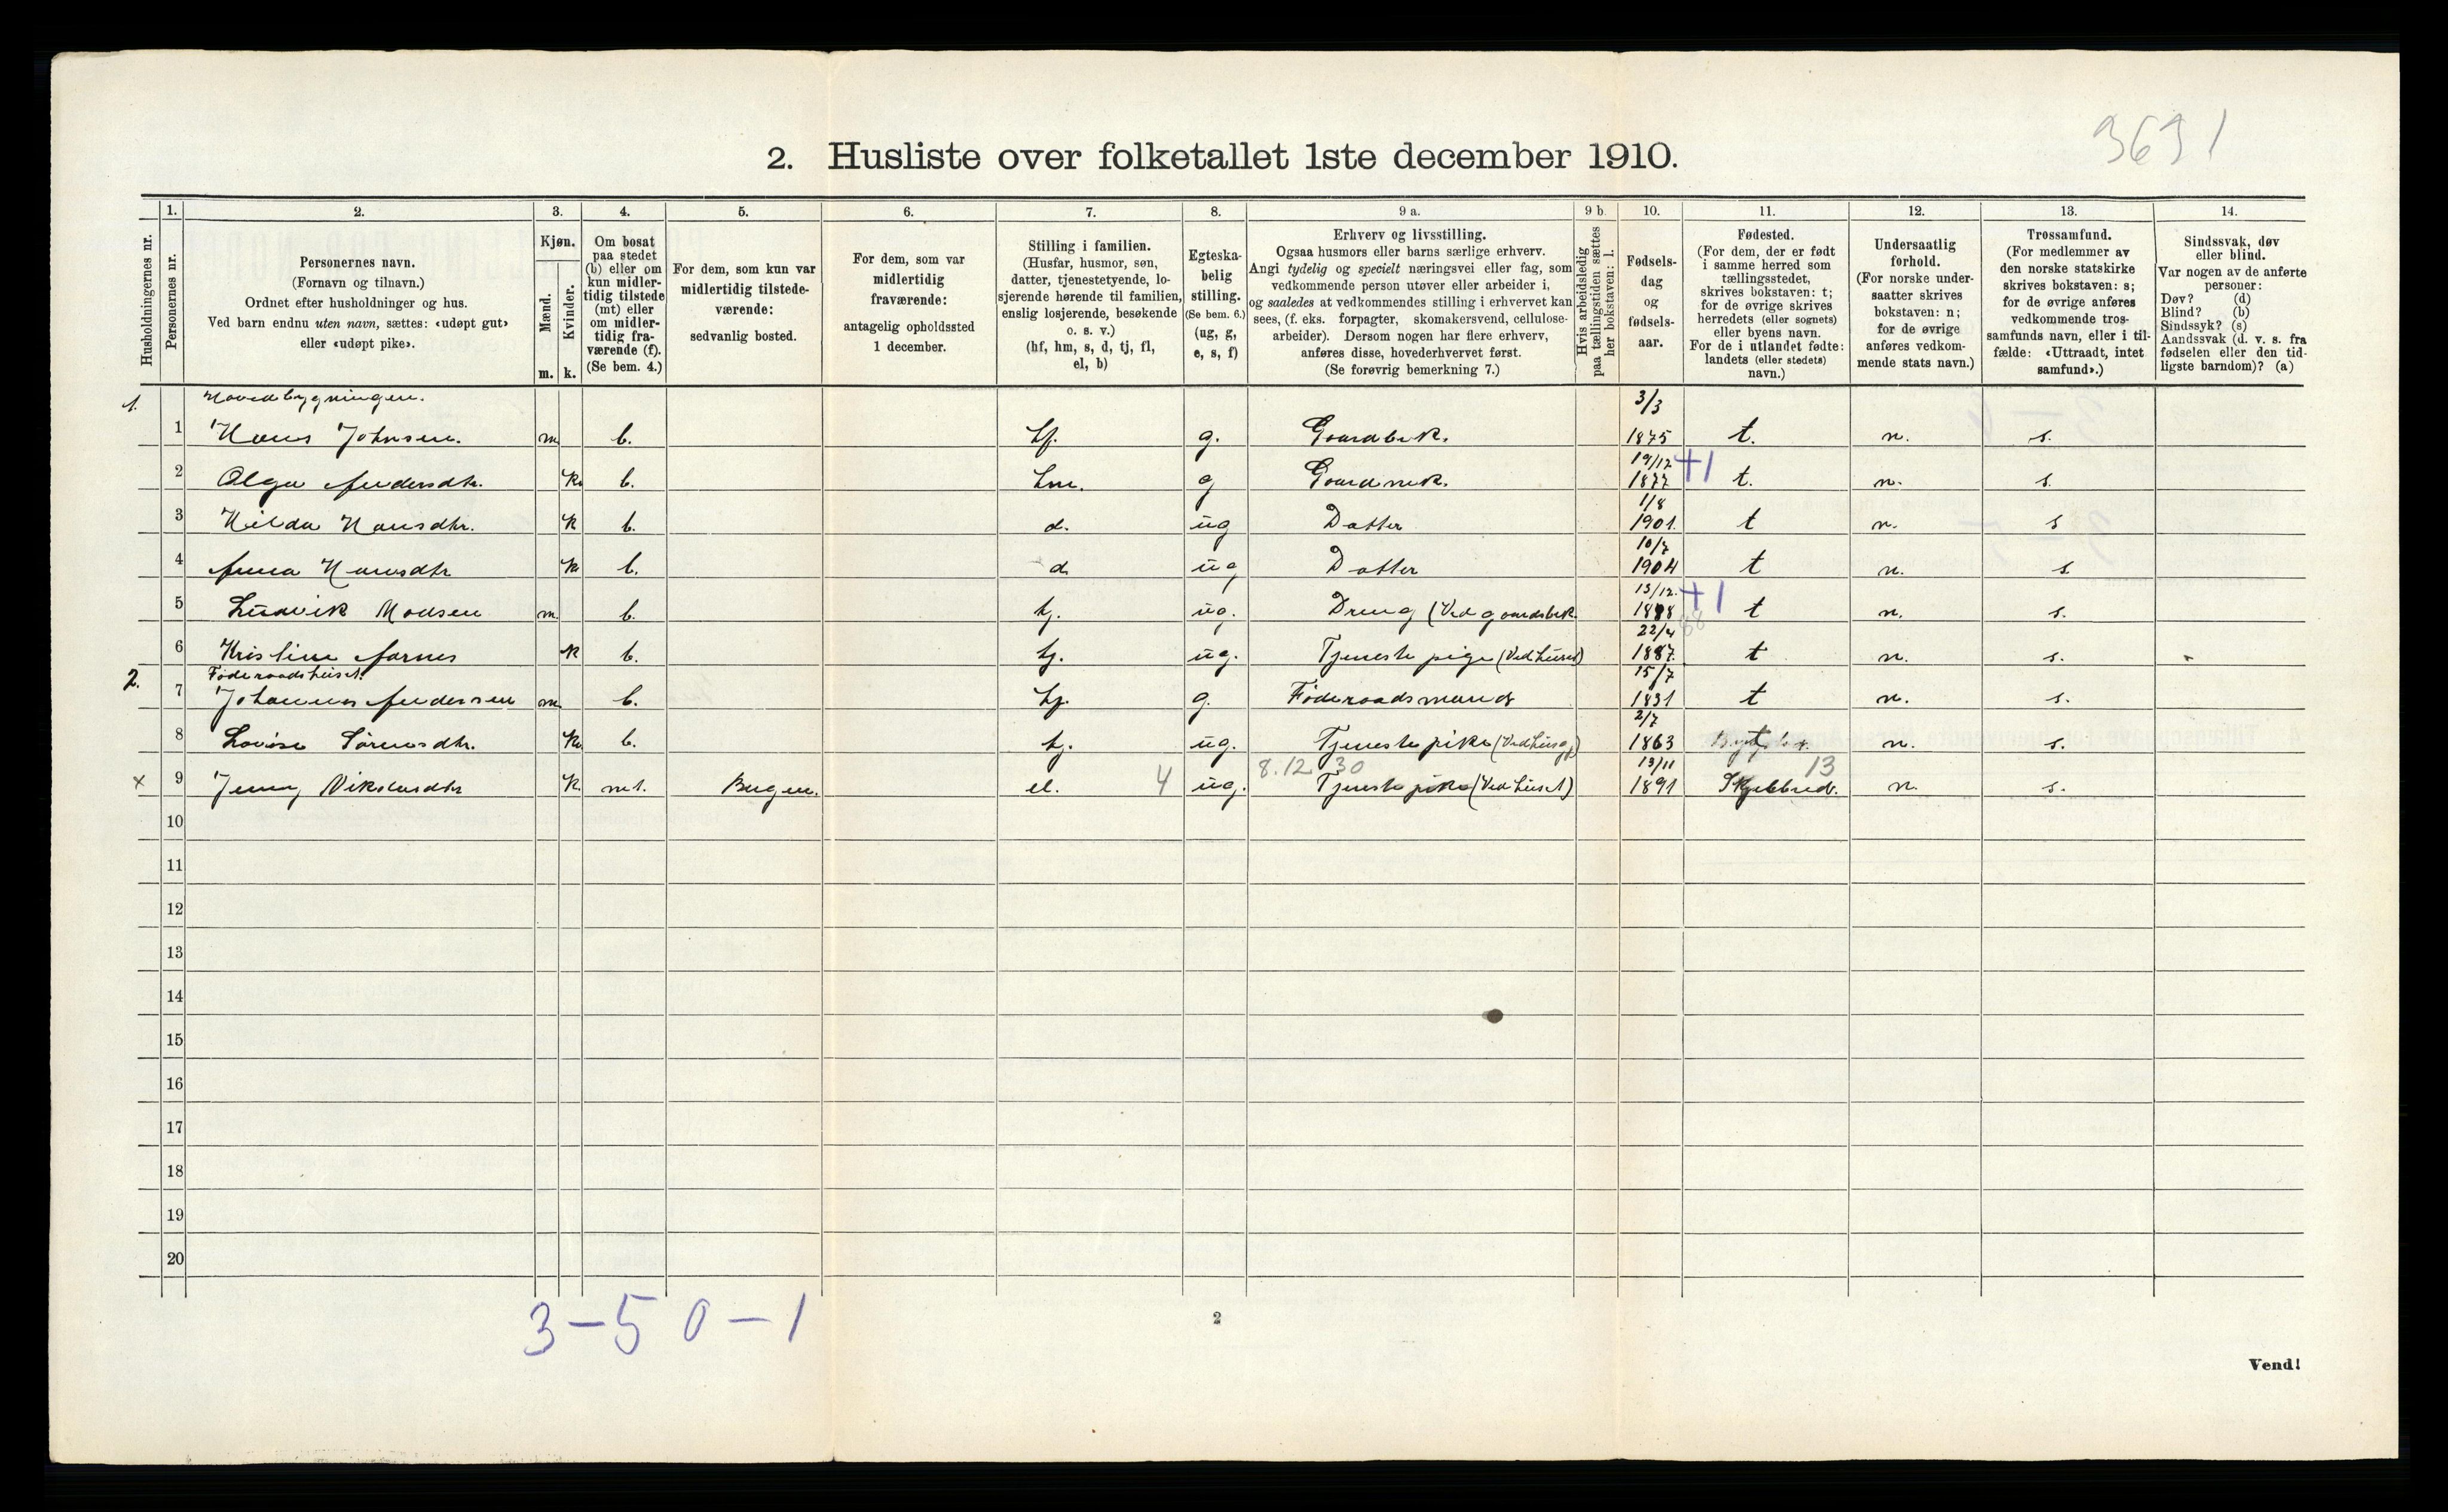 3631
2. Husliste over folketallet 1ste december 1910.
Husholdningernes nr.
1. Personernes nr.
2. Personernes navn. (Fornavn og tilnavn.) Ordnet efter husholdninger og hus. Ved barn endnu uten navn, sættes: «udøpt gut» eller «udøpt pike».
3. Kjøn. Mænd. m. Kvinder. k.
4. Om bosat paa stedet (b) eller om kun midlertidig tilstede (mt) eller om midlertidig fraværende (f). (Se bem. 4.)
5. For dem, som kun var midlertidig tilstedeværende: sedvanlig bosted.
6. For dem, som var midlertidig fraværende: antagelig opholdssted 1 december.
7. Stilling i familien. (Husfar, husmor, søn, datter, tjenestetyende, losjerende hørende til familien, enslig losjerende, besøkende o. s. v.) (hf, hm, s, d, tj, fl, el, b)
8. Egteskabelig stilling. (Se bem. 6.) (ug, g, e, s, f)
9 a. Erhverv og livsstilling. Ogsaa husmors eller barns særlige erhverv. Angi tydelig og specielt næringsvei eller fag, som vedkommende person utøver eller arbeider i, og saaledes at vedkommendes stilling i erhvervet kan sees, (f. eks. forpagter, skomakersvend, cellulosearbeider). Dersom nogen har flere erhverv, anføres disse, hovederhvervet først. (Se forøvrig bemerkning 7.)
9 b. Hvis arbeidsledig paa tællingstiden sættes her bokstaven: l.
10. Fødselsdag og fødselsaar.
11. Fødested. (For dem, der er født i samme herred som tællingsstedet, skrives bokstaven: t; for de øvrige skrives herredets (eller sognets) eller byens navn. For de i utlandet fødte: landets (eller stedets) navn.)
12. Undersaatlig forhold. (For norske undersaatter skrives bokstaven: n; for de øvrige anføres vedkommende stats navn.)
13. Trossamfund. (For medlemmer av den norske statskirke skrives bokstaven: s; for de øvrige anføres vedkommende trossamfunds navn, eller i tilfælde: «Uttraadt, intet samfund».)
14. Sindssvak, døv eller blind. Var nogen av de anførte personer: Døv? (d) Blind? (b) Sindssyk? (s) Aandssvak (d. v. s. fra fødselen eller den tidligste barndom)? (a)
1. Hovedbygningen. 3/3
1 Hans Johnsen. m b. hf. g. Gaardbruk. 1875 t. n. s.
19/12 +1
2 Olga Andersdtr. k b. hm. g 1877 t. n. s.
1/8
3 Hilda Hansdtr. k b. d. ug Datter 1901. t n. s
10/7
4 Anna Hansdtr k b. d ug Datter 1904 t n. s
13/12. +1
5 Ludvik m b. tj. ug. Dreng (Ved gaardsbruk. 1888 88 t n. s.
22/4
6 Kristine Aarnes k b. tj. ug. Tjeneste pige (Ved huset) 1887. t n. s.
2. Føderaadshuset. 15/7
7 Johannes Andersen m b. hf. g. Føderaadsmand 1831 t n. s.
2/7
8 Lovise Sørensdtr. k b. tj. ug. Tjeneste pike 1863 n. s.
8.12 30 13/11 13
x 9 Jenny k mt. el. 4 ug. Tjeneste pike (Ved huset) 1891 n. s.
10
11
12
13
14
15
16
17
18
19
20
3 – 5 0 – 1
2
Vend!